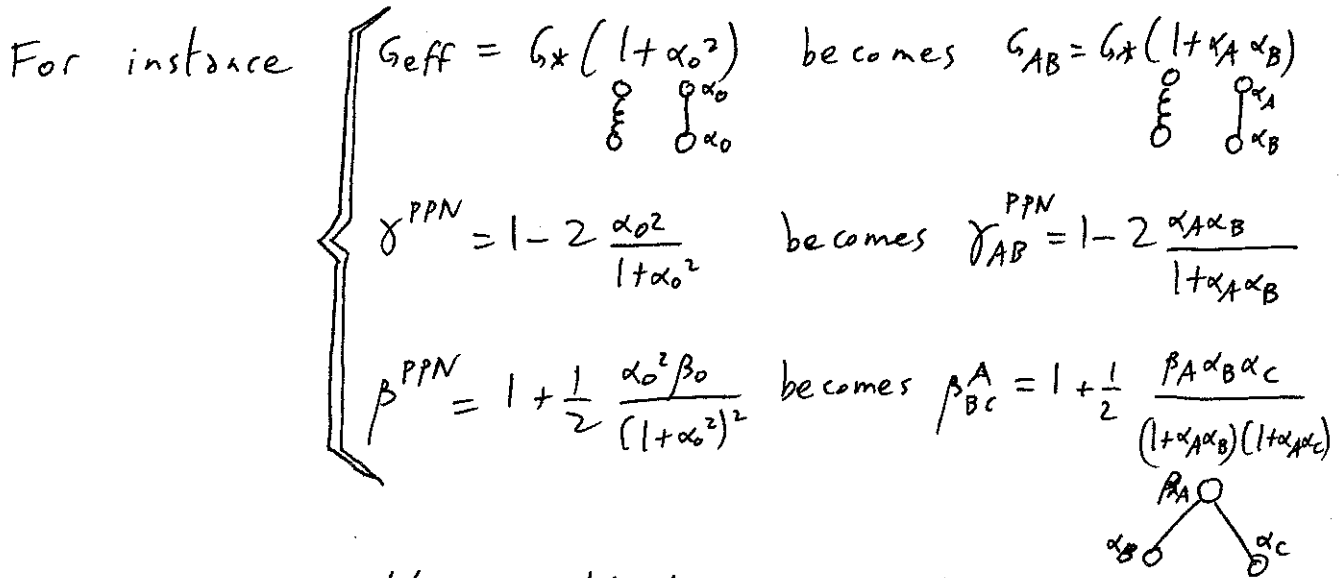 For instance G_eff = G* (1 + α₀²) becomes G_AB = G* (1 + α_A α_B)
α₀ α_A
α₀ α_B
γ^PPN = 1 - 2 α₀² / (1 + α₀²) becomes γ_AB^PPN = 1 - 2 α_A α_B / (1 + α_A α_B)
β^PPN = 1 + 1/2 α₀² β₀ / (1 + α₀²)² becomes β^A_BC = 1 + 1/2 β_A α_B α_C / ((1 + α_A α_B)(1 + α_A α_C))
β_A
α_B α_C